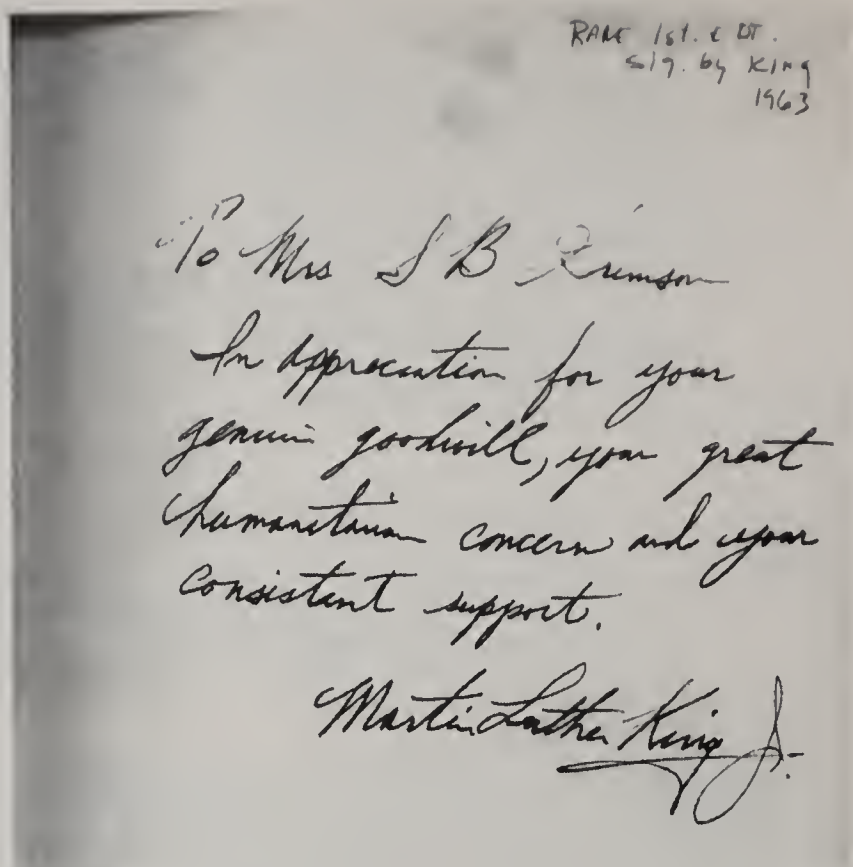 RARE 1st. EDT.
sig. by King
1963
To Mrs S B
In appreciation for your
genuine goodwill, your great
humanitarian concern and your
consistant support.
Martin Luther King Jr.